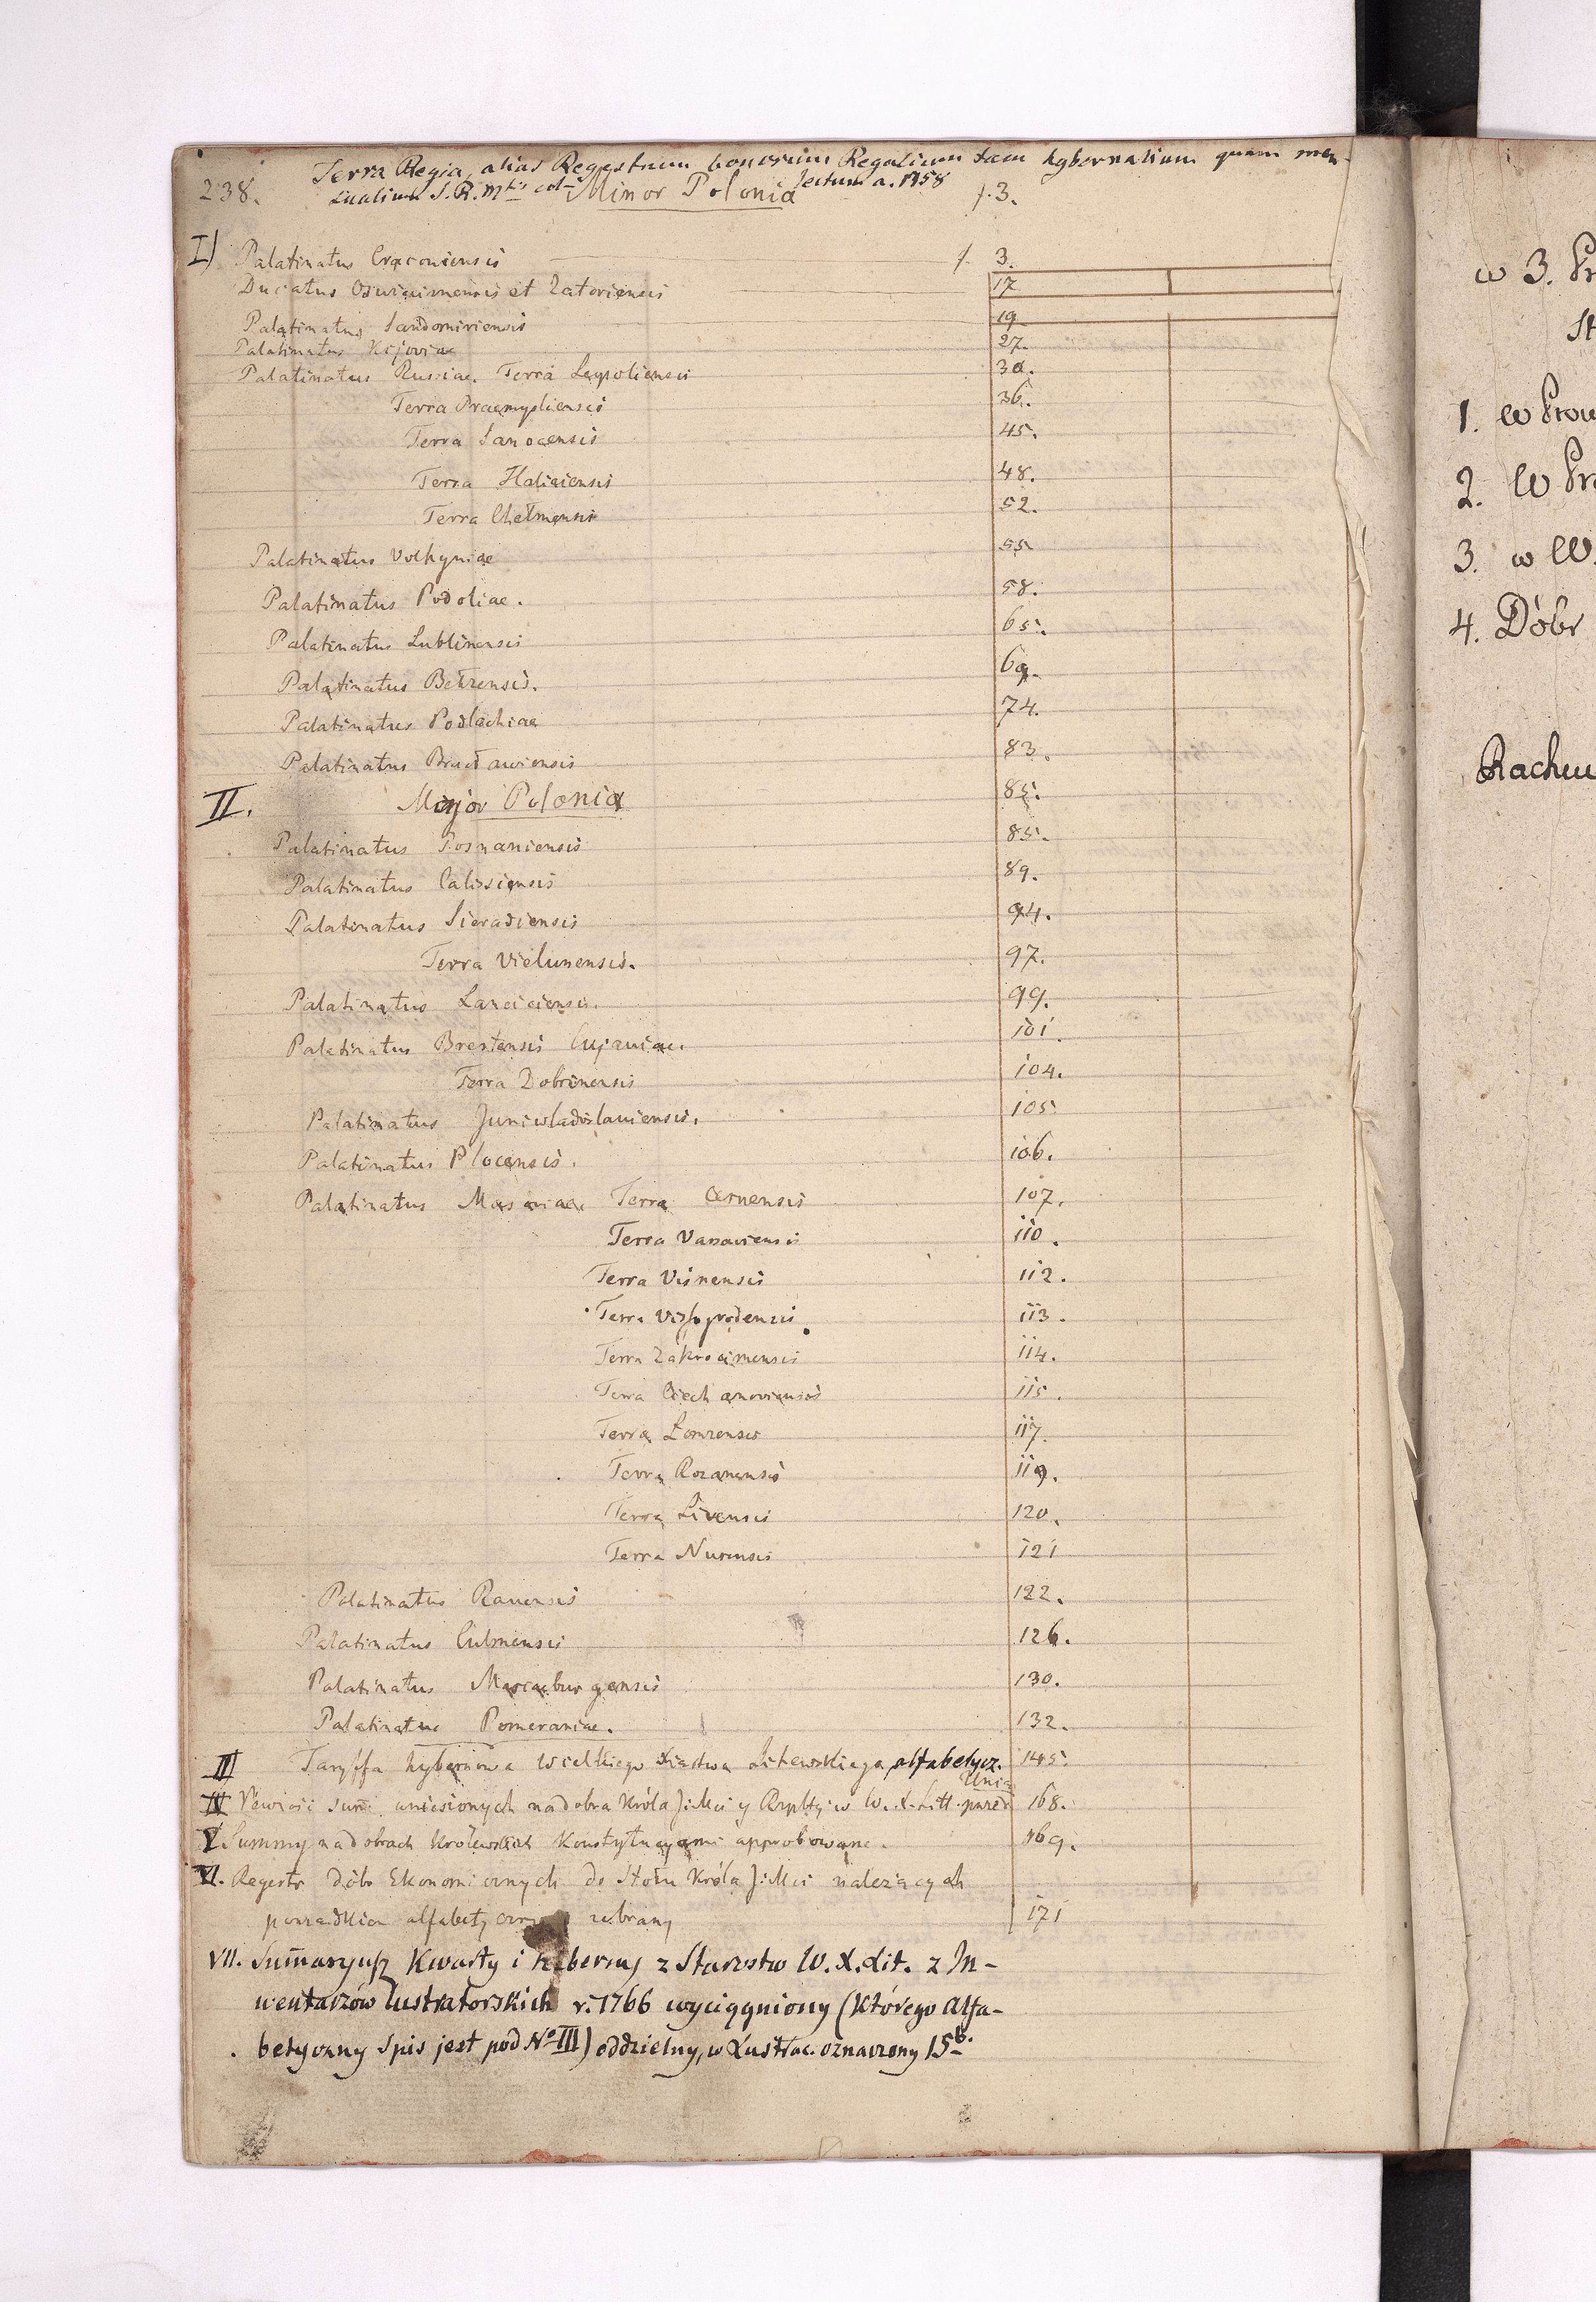 Terra Regia, alias Regestrum bonorum Regalium tam hybernalium quam men-
238. sualium S. R. Mtis col- lectum a. 1758
Minor Polonia f. 3.
I) Palatinatus Cracoviensis f. 3.
Ducatus Osviecimensis et Zatoriensis 17
Palatinatus Sandomiriensis 19
Palatinatus Kijoviae 27.
Palatinatus Russiae. Terra Leopoliensis 30.
Terra Praemysliensis 36.
Terra Sanocensis 45.
Terra Haliciensis 48.
Terra Chełmensis 52.
Palatinatus Volhyniae 55
Palatinatus Podoliae. 58.
Palatinatus Lublinensis 65.
Palatinatus Bełzensis. 69.
Palatinatus Podlachiae 74.
Palatinatus Bracłaviensis 83.
II. Major Polonia 85.
Palatinatus Posnaniensis 85.
Palatinatus Calisiensis 89.
Palatinatus Sieradiensis 94.
Terra Vielunensis. 97.
Palatinatus Lanciciensis. 99.
Palatinatus Brestensis Cujaviae. 101.
Terra Dobrinensis 104.
Palatinatus Juniwladislaviensis. 105
Palatinatus Plocensis. 106.
Palatinatus Masoviae. Terra Cernensis 107.
Terra Varsaviensis 110.
Terra Visnensis 112.
Terra Vishgrodensis. 113.
Terra Zakrocimensis 114.
Terra Ciechanoviensis 115.
Terra Łomzensis 117.
Terra Rozanensis 119.
Terra Livensis 120.
Terra Nurensis 121
Palatinatus Ravensis 122.
Palatinatus Culmensis 126.
Palatinatus Mariaeburgensis 130.
Palatinatus Pomeraniae. 132.
III Taryffa hybernowa Wielkiego Xięstwa Litewskiego alfabetycz. 145.
IV summ wniesionych na dobra Króla JMci y Rzpltej w W. X. Litt. przed Unią 168.
V Summy na dobrach Królewskich Konstytucyami approbowane. 169.
VI. Regestr dóbr Ekonomicznych do Stołu Króla JMci należących
porządkiem alfabetycznym zebrany 171
VII. Sum̄aryusz Kwarty i hyberny z Starostw W. X. Lit. z In-
wentarzów lustratorskich r. 1766 wyciągniony (którego Alfa-
betyczny Spis jest pod No III) oddzielny, w Lustrac. oznaczony 15b.
w 3. Pr
St
1. w Prow
2. W Pro
3. w W.
4. Dóbr
Rachu